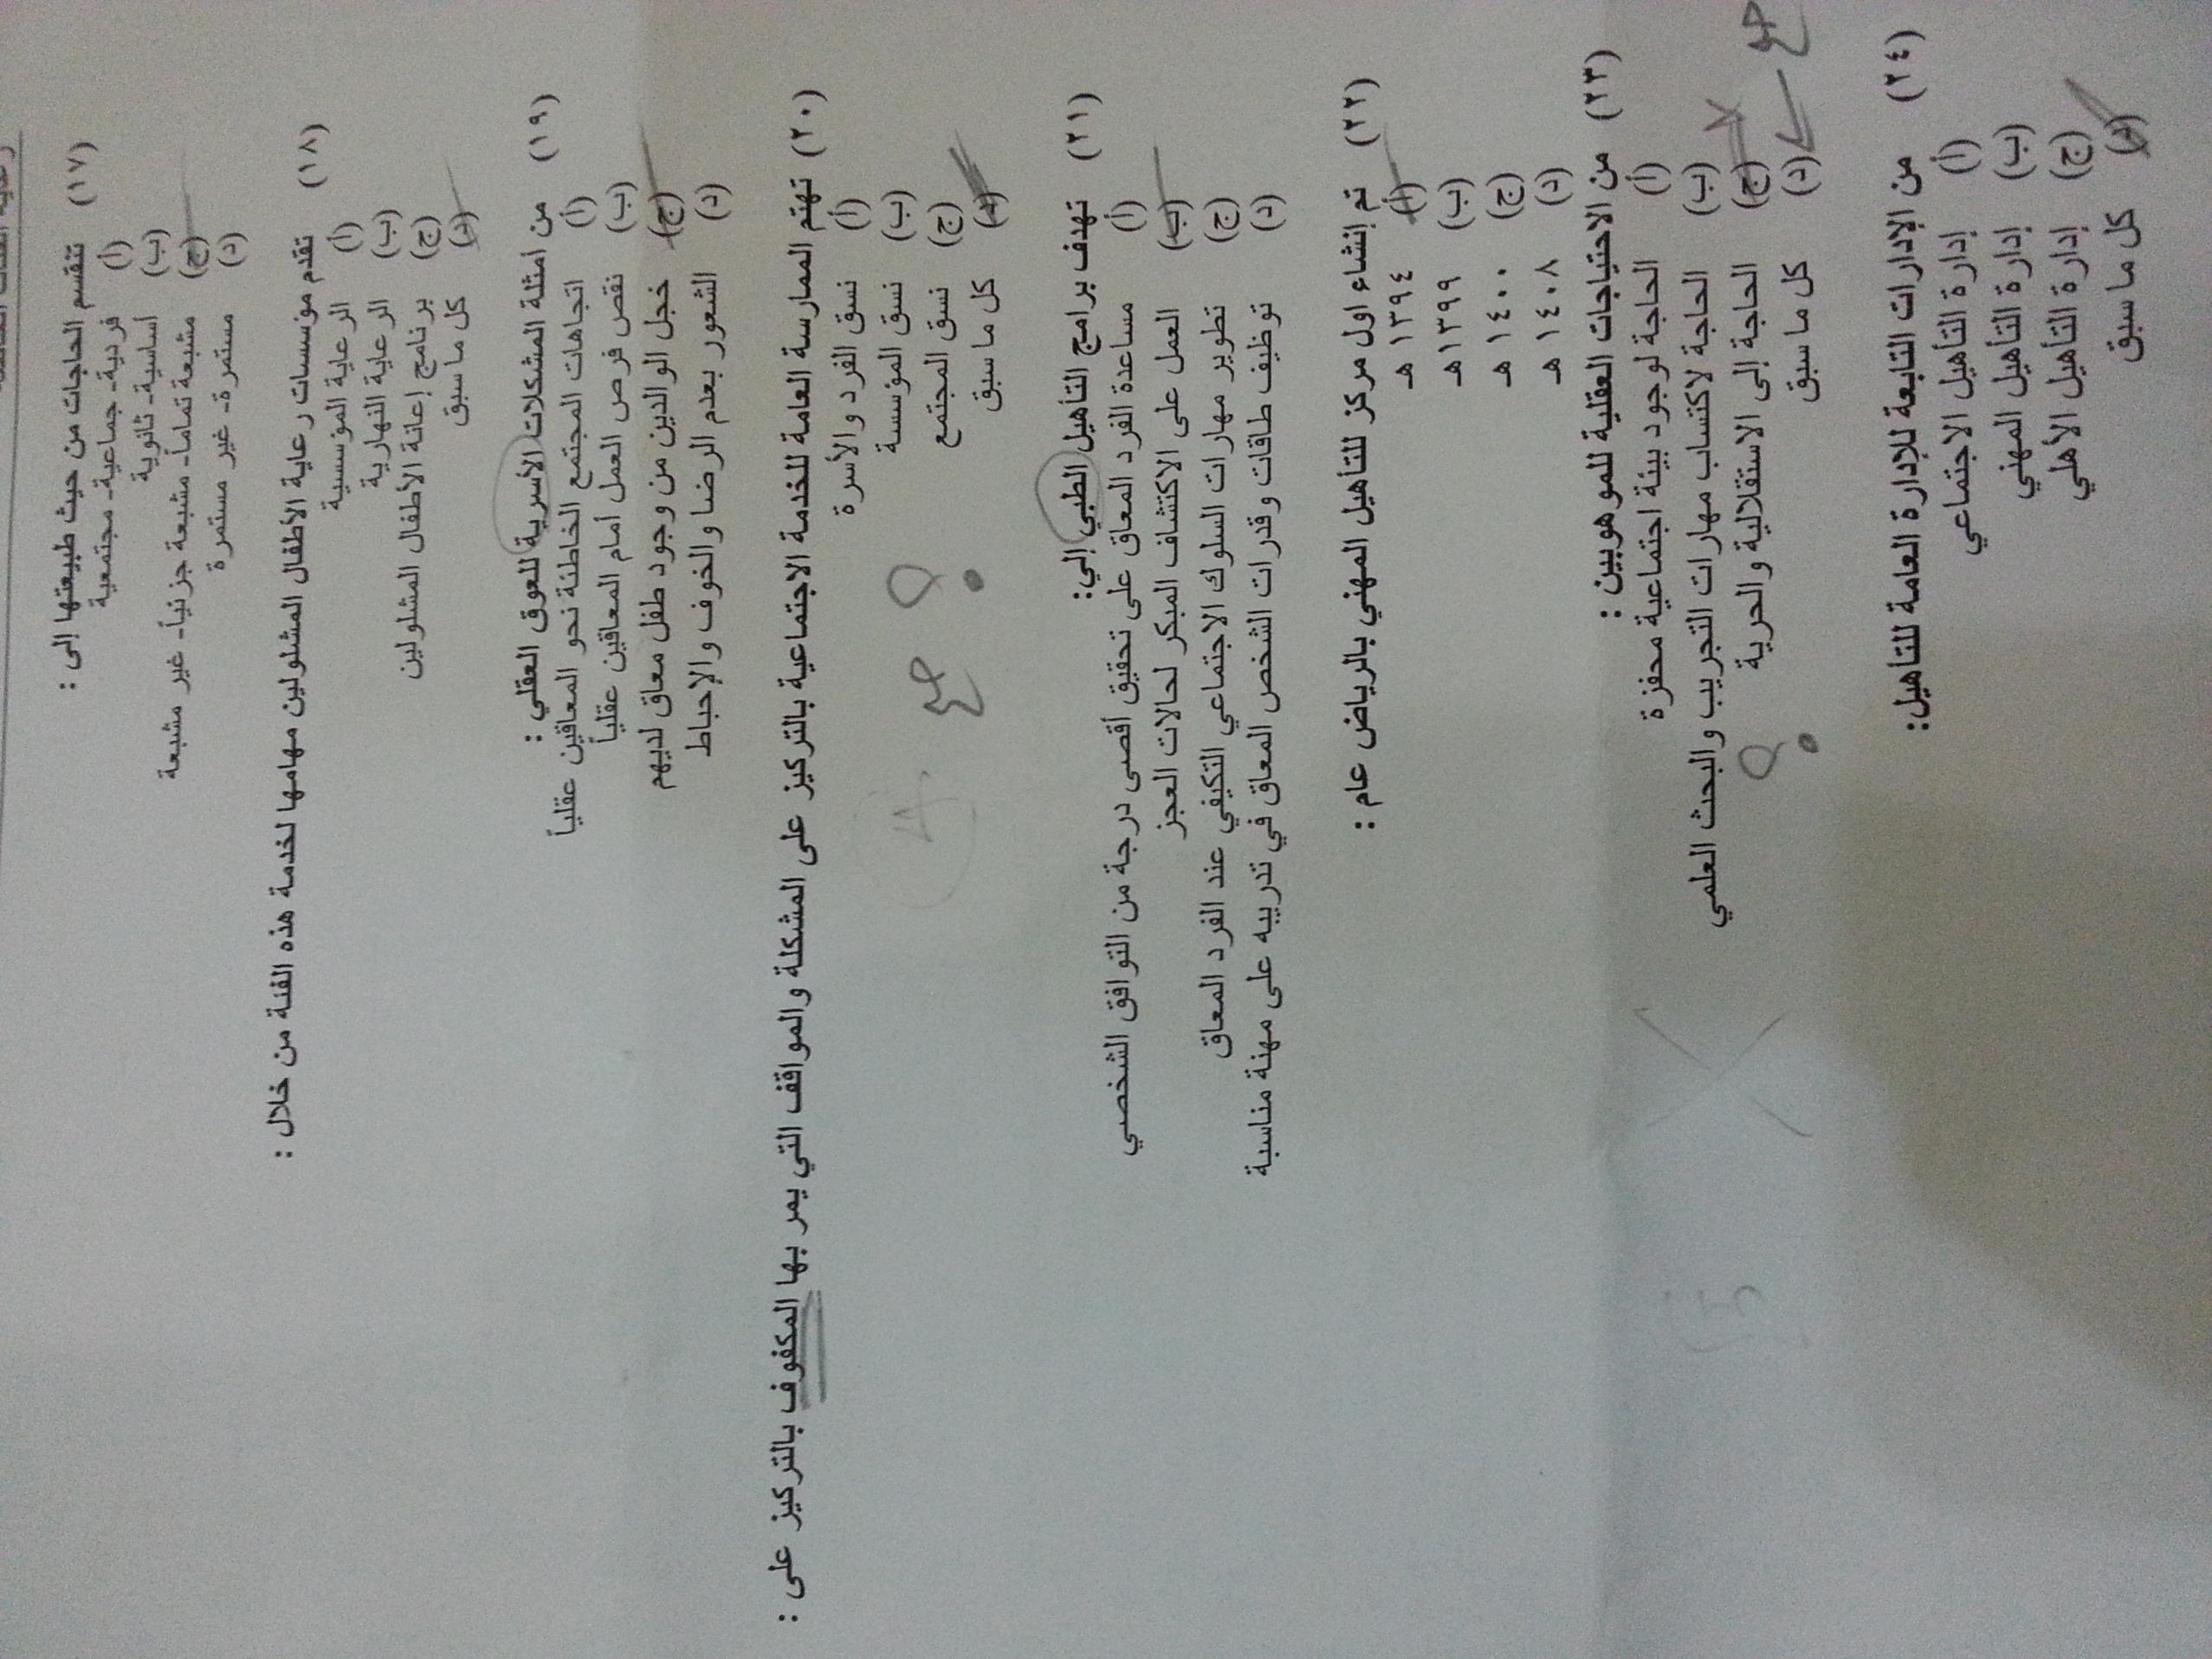 (١٧) تنقسم الحاجات من حيث طبيعتها إلى :
(أ) فردية- جماعية- مجتمعية
(ب) أساسية- ثانوية
(ج) مشبعة تماماً- مشبعة جزئياً- غير مشبعة
(د) مستمرة- غير مستمرة
(١٨) تقدم مؤسسات رعاية الأطفال المشلولين مهامها لخدمة هذه الفئة من خلال :
(أ) الرعاية المؤسسية
(ب) الرعاية النهارية
(ج) برنامج إعانة الأطفال المشلولين
(د) كل ما سبق
(١٩) من أمثلة المشكلات الأسرية للعوق العقلي :
(أ) اتجاهات المجتمع الخاطئة نحو المعاقين عقلياً
(ب) نقص فرص العمل أمام المعاقين عقلياً
(ج) خجل الوالدين من وجود طفل معاق لديهم
(د) الشعور بعدم الرضا والخوف والإحباط
(٢٠) تهتم الممارسة العامة للخدمة الاجتماعية بالتركيز على المشكلة والمواقف التي يمر بها المكفوف بالتركيز على :
(أ) نسق الفرد والأسرة
(ب) نسق المؤسسة
(ج) نسق المجتمع
(د) كل ما سبق
(٢١) تهدف برامج التأهيل الطبي إلي:
(أ) مساعدة الفرد المعاق على تحقيق أقصى درجة من التوافق الشخصي
(ب) العمل على الاكتشاف المبكر لحالات العجز
(ج) تطوير مهارات السلوك الاجتماعي التكيفي عند الفرد المعاق
(د) توظيف طاقات وقدرات الشخص المعاق في تدريبه على مهنة مناسبة
(٢٢) تم إنشاء اول مركز للتأهيل المهني بالرياض عام :
(أ) ١٣٩٤ هـ
(ب) ١٣٩٩ هـ
(ج) ١٤٠٠ هـ
(د) ١٤٠٨ هـ
(٢٣) من الاحتياجات العقلية للموهوبين :
(أ) الحاجة لوجود بيئة اجتماعية محفزة
(ب) الحاجة لاكتساب مهارات التجريب والبحث العلمي
(ج) الحاجة إلى الاستقلالية والحرية
(د) كل ما سبق
(٢٤) من الإدارات التابعة للإدارة العامة للتأهيل:
(أ) إدارة التأهيل الاجتماعي
(ب) إدارة التأهيل المهني
(ج) إدارة التأهيل الأهلي
(د) كل ما سبق